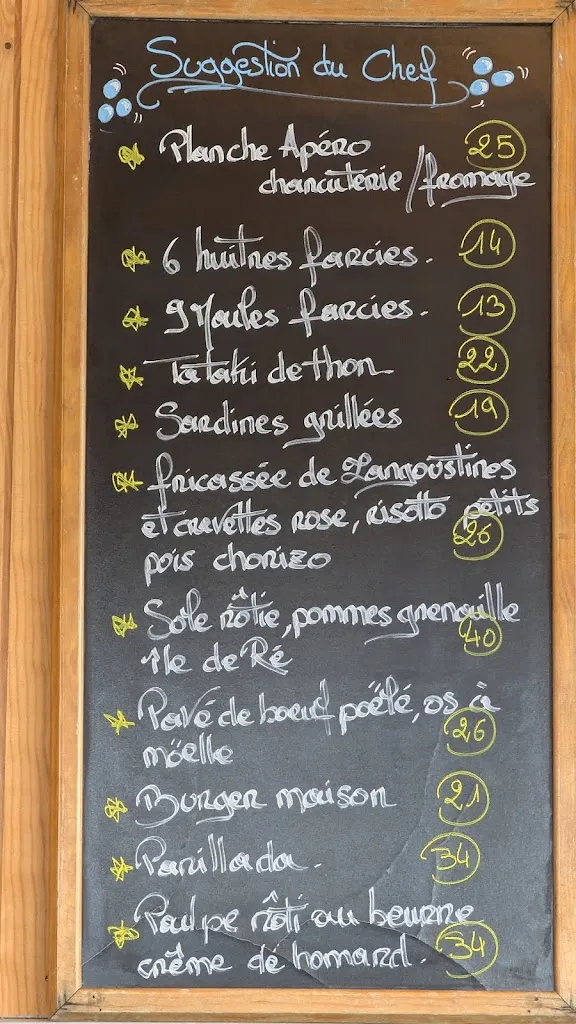 Suggestion du Chef
Planche Apéro 25
charcuterie / fromage
6 huitres farcies. 14
9 Moules farcies. 13
Tataki de thon 22
Sardines grillées 19
fricassée de Langoustines
et crevettes rose, risotto petits
pois chorizo 26
Sole rôtie, pommes grenaille 40
île de Ré
Pavé de boeuf poëlé, os à
möelle 26
Burger maison 21
Parillada. 34
Poulpe rôti au beurre
crème de homard. 34